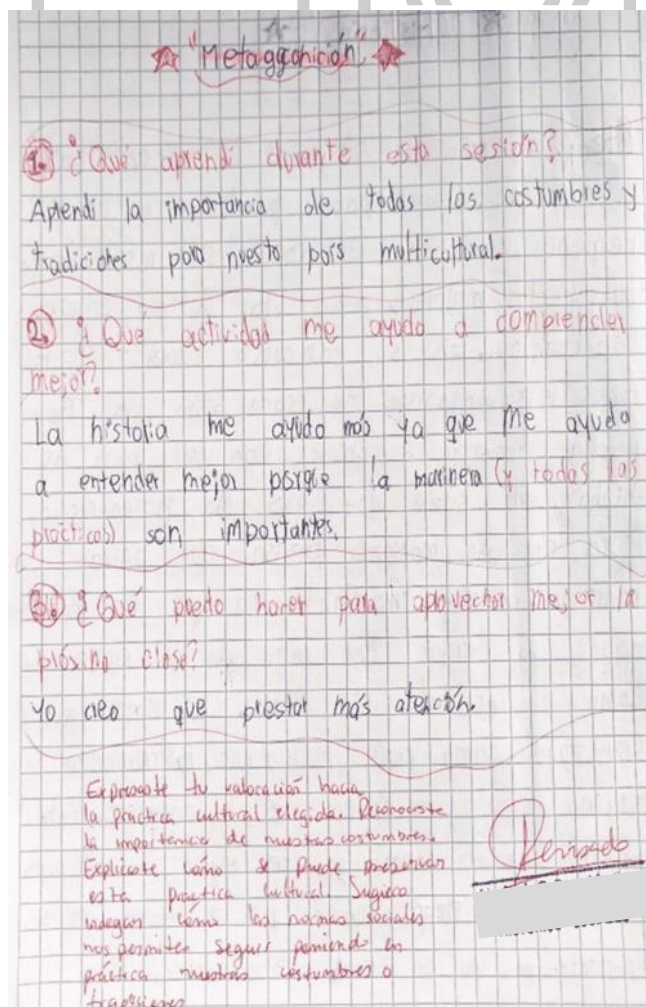 "Metaggonición"
1. ¿Qué aprendí durante esta sesión?
Aprendí la importancia de todas las costumbres y
tradiciones para nuesto país multicultural.
2. ¿Qué actividad me ayudo a comprender
mejor?
La historia me ayudo más ya que me ayuda
a entender mejor porque la marinera (y todas las
prácticas) son importantes.
3. ¿Qué puedo hacer para aprovechar mejor la
próxima clase?
Yo creo que prestar más atención.
Expresaste tu valoración hacia
la práctica cultural elegida. Reconociste
la importancia de nuestras costumbres.
Explicaste cómo se puede preservar
esta práctica cultural. Sugiero
indagar cómo las normas sociales
nos permiten seguir poniendo en
práctica nuestras costumbres o
tradiciones
Revisado